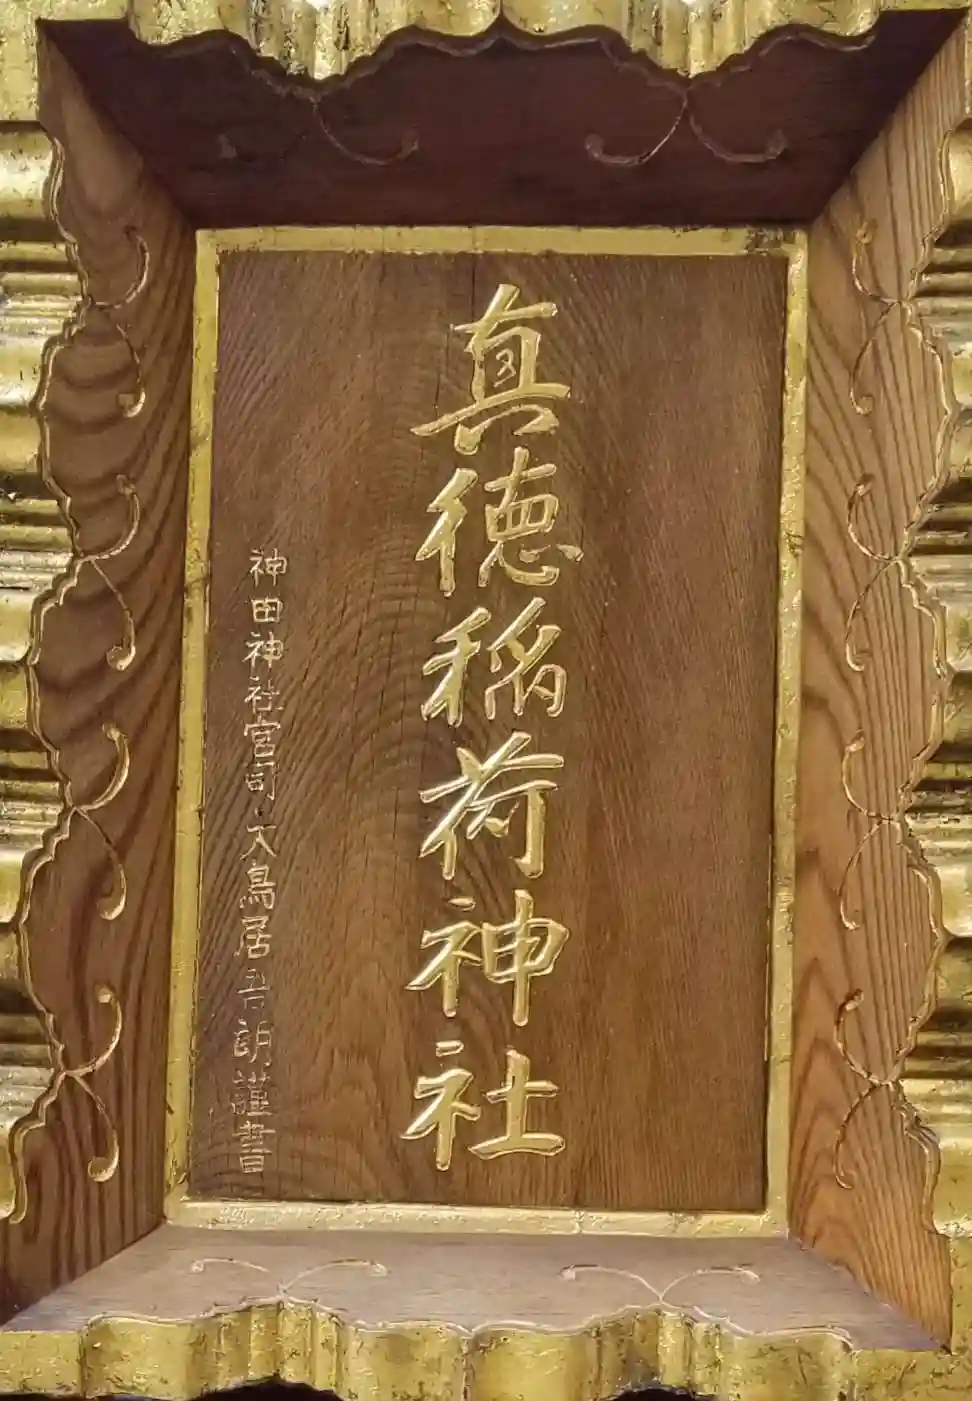 真徳稲荷神社
神田神社宮司大鳥居吾朗謹書